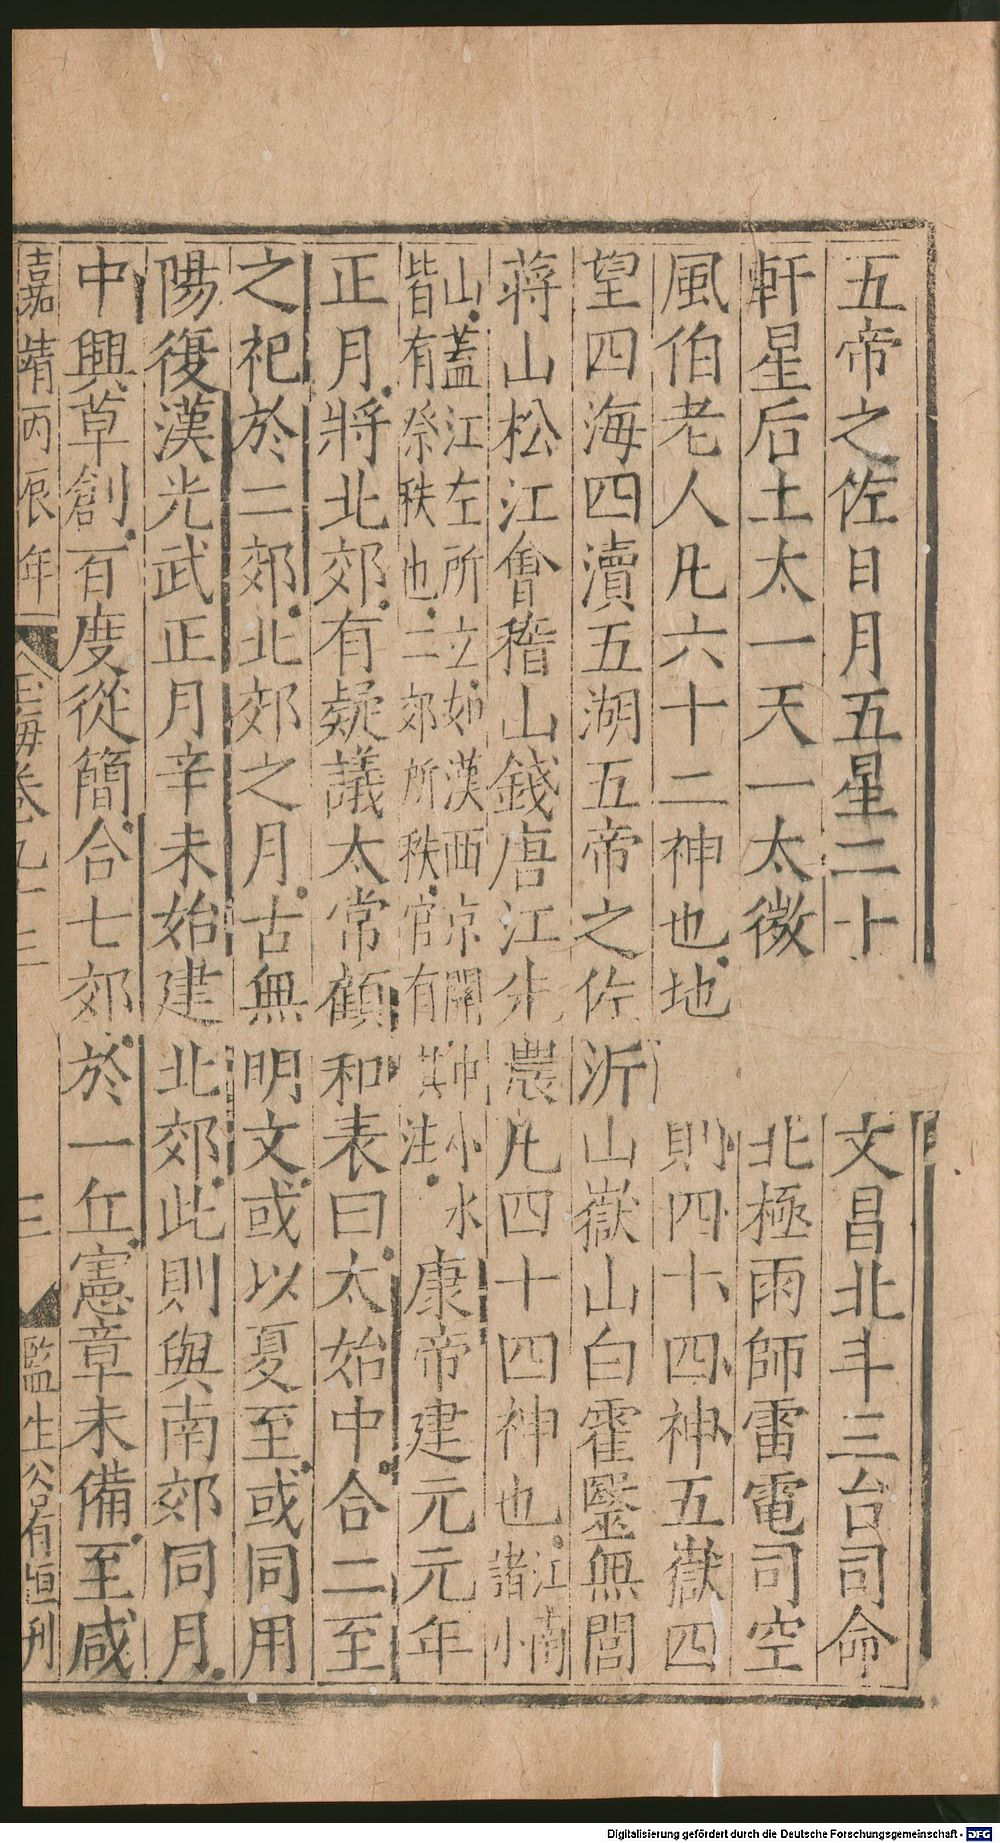 五帝之佐日月五星二十文昌北斗三台司命
軒星后土太一天一太微北極雨師雷電司空
風伯老人凡六十二神也地則四十四神五嶽四
望四海四瀆五湖五帝之佐沂山嶽山白霍毉無閭
蔣山松江會稽山錢唐江先農凡四十四神也江南諸小
山蓋江左所立如漢西京關中小水皆有祭秩也二郊所秩官有其注康帝建元元年
正月將北郊有疑議太常顧和表曰太始中合二至
之祀於二郊北郊之月古無明文或以夏至或同用
陽復漢光武正月辛未始建北郊此則與南郊同月
中興草創百度從簡合七郊於一丘憲章未備至咸
嘉靖丙辰年 玉海卷九十三 三 監生谷有恒刋
Digitalisierung gefördert durch die Deutsche Forschungsgemeinschaft - DFG